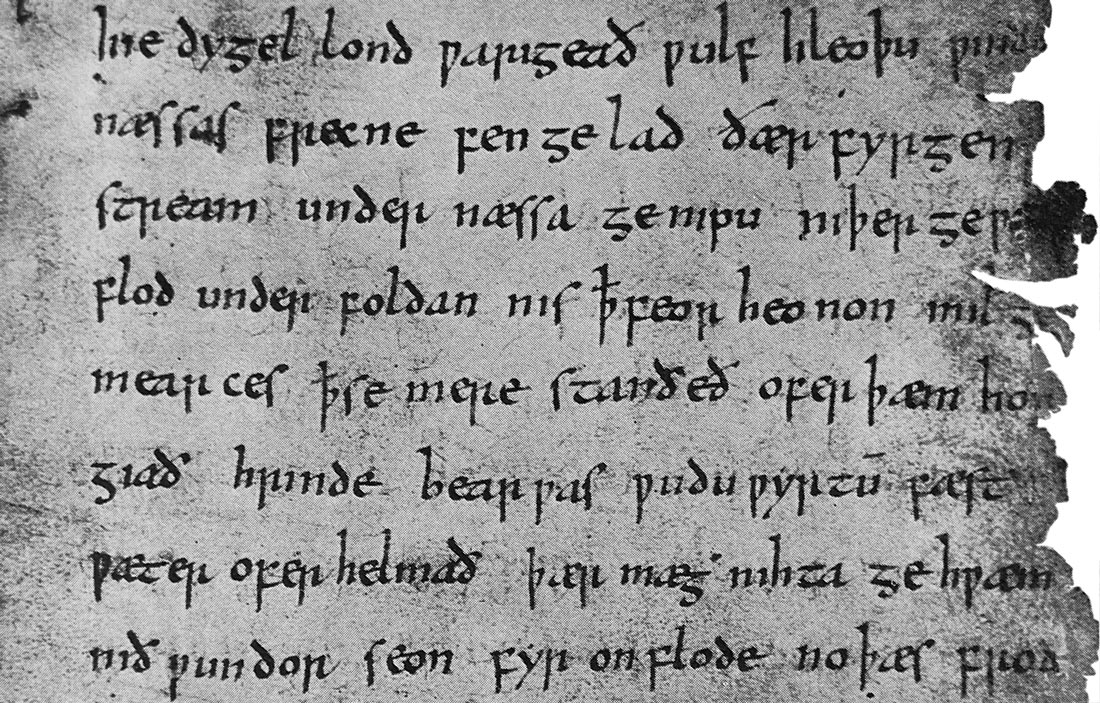 hie dygel lond ƿarigeað ƿulf hleoþu ƿind
næssas frecne fen gelad ðær fyrgen
stream under næssa genipu niþer ge
flod under foldan nis ꝥ feor heonon mil g
mearces ꝥ se mere standeð ofer þæm ho
giað hrinde bearƿas ƿudu ƿyrtū fæst
ƿæter ofer helmað þær mæg nihta gehƿæm
nið ƿundor seon fyr on flode no þæs frod